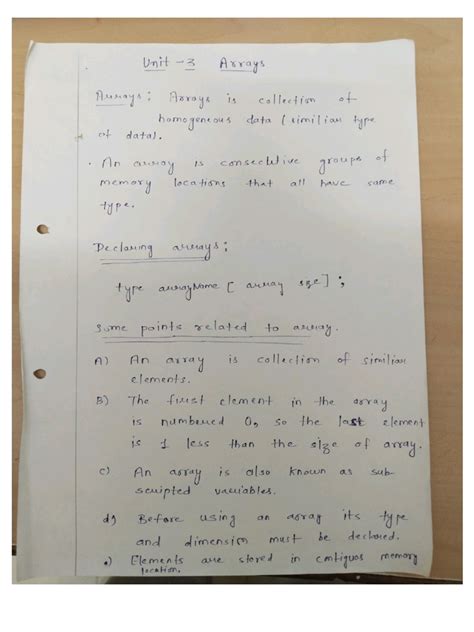 Unit - 3 Arrays
Arrays : Arrays is collection of
homogeneous data (similiar type
of data).
• An array is consecutive groups of
memory locations that all have same
type.
Declaring arrays :
type arrayName [ array size ] ;
Some points related to array.
A) An array is collection of similiar
elements.
B) The first element in the array
is numbered 0, so the last element
is 1 less than the size of array.
C) An array is also known as sub-
scripted variables.
d) Before using an array its type
and dimension must be declared.
e) Elements are stored in contiguos memory
location.